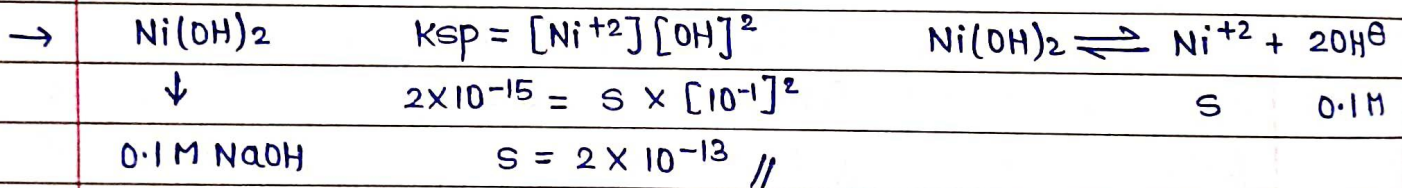 → Ni(OH)2 Ksp = [Ni+2][OH]² Ni(OH)2 ⇌ Ni+2 + 2OH⊖
↓ 2×10-15 = S × [10-1]² S 0.1M
0.1 M NaOH S = 2 × 10-13 //